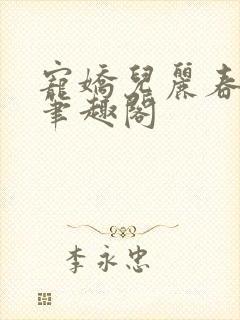 寵嬌兒麗春
筆趣閣
李永忠